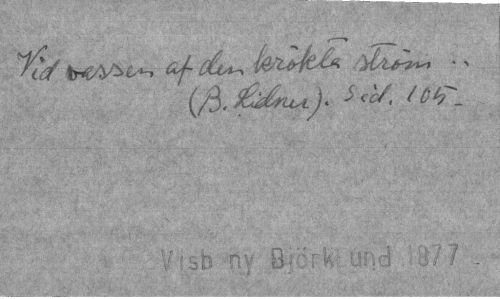 Vid vassen af den krökta ström..
(B. Lidner). Sid. 105.
Visb ny Björklund 1877.